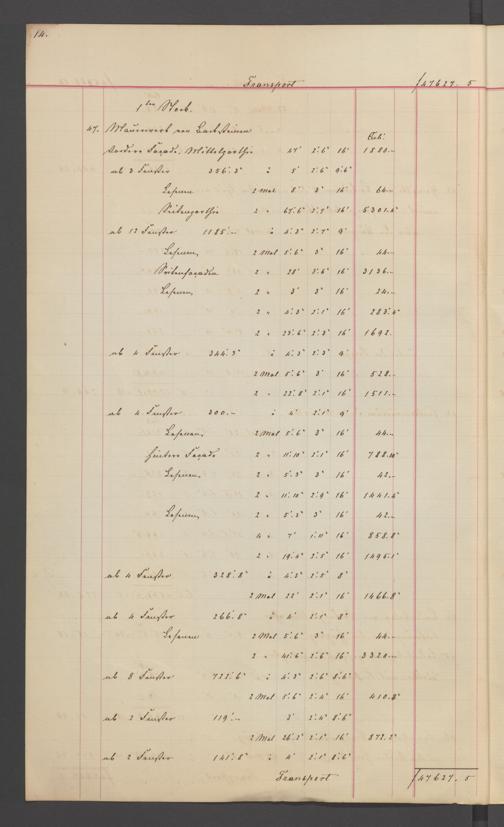 14.
Transport f 47627. 5
1ter Stock.
47. Mauerwerk von Backsteinen
Cub:
Vordere Façade, Mittelparthie 47' 2'.6" 16' 1880.–
ab 3 Fenster 356'.3" : 5' 2'.6" 9'.6"
Lesenen 2 Mal 8' 3" 16' 64.–
Seitenparthie 2 "
ab 12 Fenster 1185'.– : 4'.3" 2'.7" 9'
Lesenen, 2 Mal 5'.6" 3" 16' 44.–
Seitenfaçaden 2 " 28' 3'.6" 16' 3136.–
Lesenen, 2 " 3' 3" 16' 24.–
2 " 4'.3" 2'.1" 16' 283.4"
2 " 23'.6" 2'.3" 16' 1692.
ab 4 Fenster 344'.3" : 4'.3" 2'.3" 9'
2 Mal 5'.6" 3" 16' 528.–
2 " 22'.8" 2'.1" 16' 1511.–
ab 4 Fenster 300.– : 4' 2'.1" 9'
Lesenen, 2 Mal 5'.6" 3" 16' 44.–
hintere Façade 2 " 11'.10" 2'.1" 16' 788.10"
Lesenen, 2 " 5'.3" 3" 16' 42.–
2 " 11'.10" 2'.9" 16' 1441.6"
Lesenen, 2 " 5'.3" 3" 16' 42.–
4 " 7' 1'.11" 16' 858.8"
2 " 19'.4" 2'.5" 16' 1495.1"
ab 4 Fenster 328'.8" : 4'.3" 2'.5" 8'
2 Mal 22' 2'.1" 16' 1466.8"
ab 4 Fenster 266'.8" : 4' 2'.1" 8'
Lesenen 2 Mal 5'.6" 3" 16' 44.–
2 " 41'.6" 2'.6" 16' 3320.–
ab 8 Fenster 722'.6" : 4'.3" 2'.6" 8'.6"
2 Mal 5'.6" 2'.4" 16' 410.8"
ab 2 Fenster 119'.– 3' 2'.4" 8'.6"
2 Mal 26'.2" 2'.1" 16' 872.2"
ab 2 Fenster 141'.8" : 4' 2'.1" 8'.6"
Transport f 47627. 5